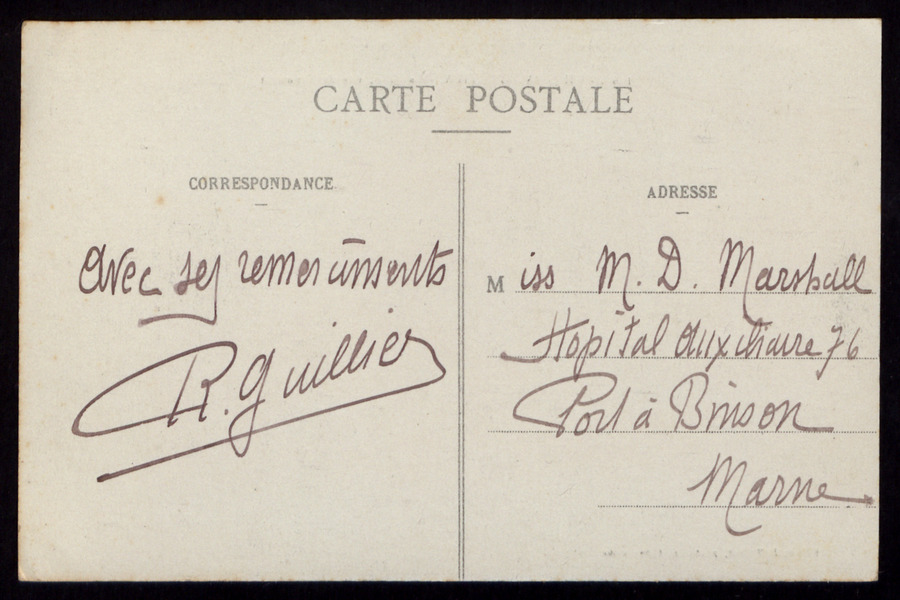 CARTE POSTALE
CORRESPONDANCE
ADRESSE
avec ses remerciments
R. Guillier
Miss M. D. Marshall
Hopital Auxiliaire 76
Port à Binson
Marne